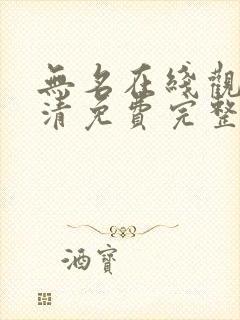 無名在綫觀
清免費完整
酒寶